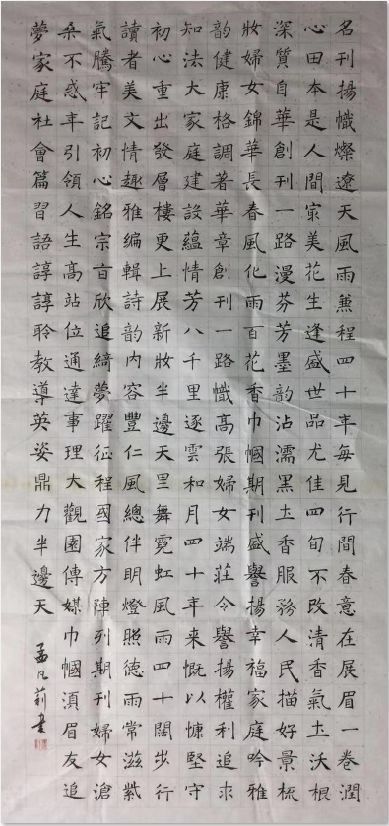 名刊揚幟燦遼天風雨兼程四十年每見行間春意在展眉一卷潤
心田本是人間家美花生逢盛世品尤佳四旬不改清香氣土沃根
深質自華創刊一路漫芬芳墨韵沾濡黑土香服務人民描好景梳
妝婦女錦華長春風化雨百花香巾幗期刊盛譽揚幸福家庭吟雅
韵健康格調著華章創刊一路幟高張婦女端莊令譽揚權利追求
知法大家庭建設蘊情芳八千里逐雲和月四十年來慨以慷堅守
初心重出發層樓更上展新妝半邊天里舞霓虹風雨四十闊步行
讀者美文情趣雅編輯詩韵內容豐仁風總伴明燈照德雨常滋紫
氣騰牢記初心銘宗旨欣追綺夢躍征程國家方陣列期刊婦女滄
桑不惑年引領人生高站位通達事理大觀園傳媒巾幗湏眉友追
夢家庭社會篇習語諄諄聆教導英姿鼎力半邊天
孟凡莉書